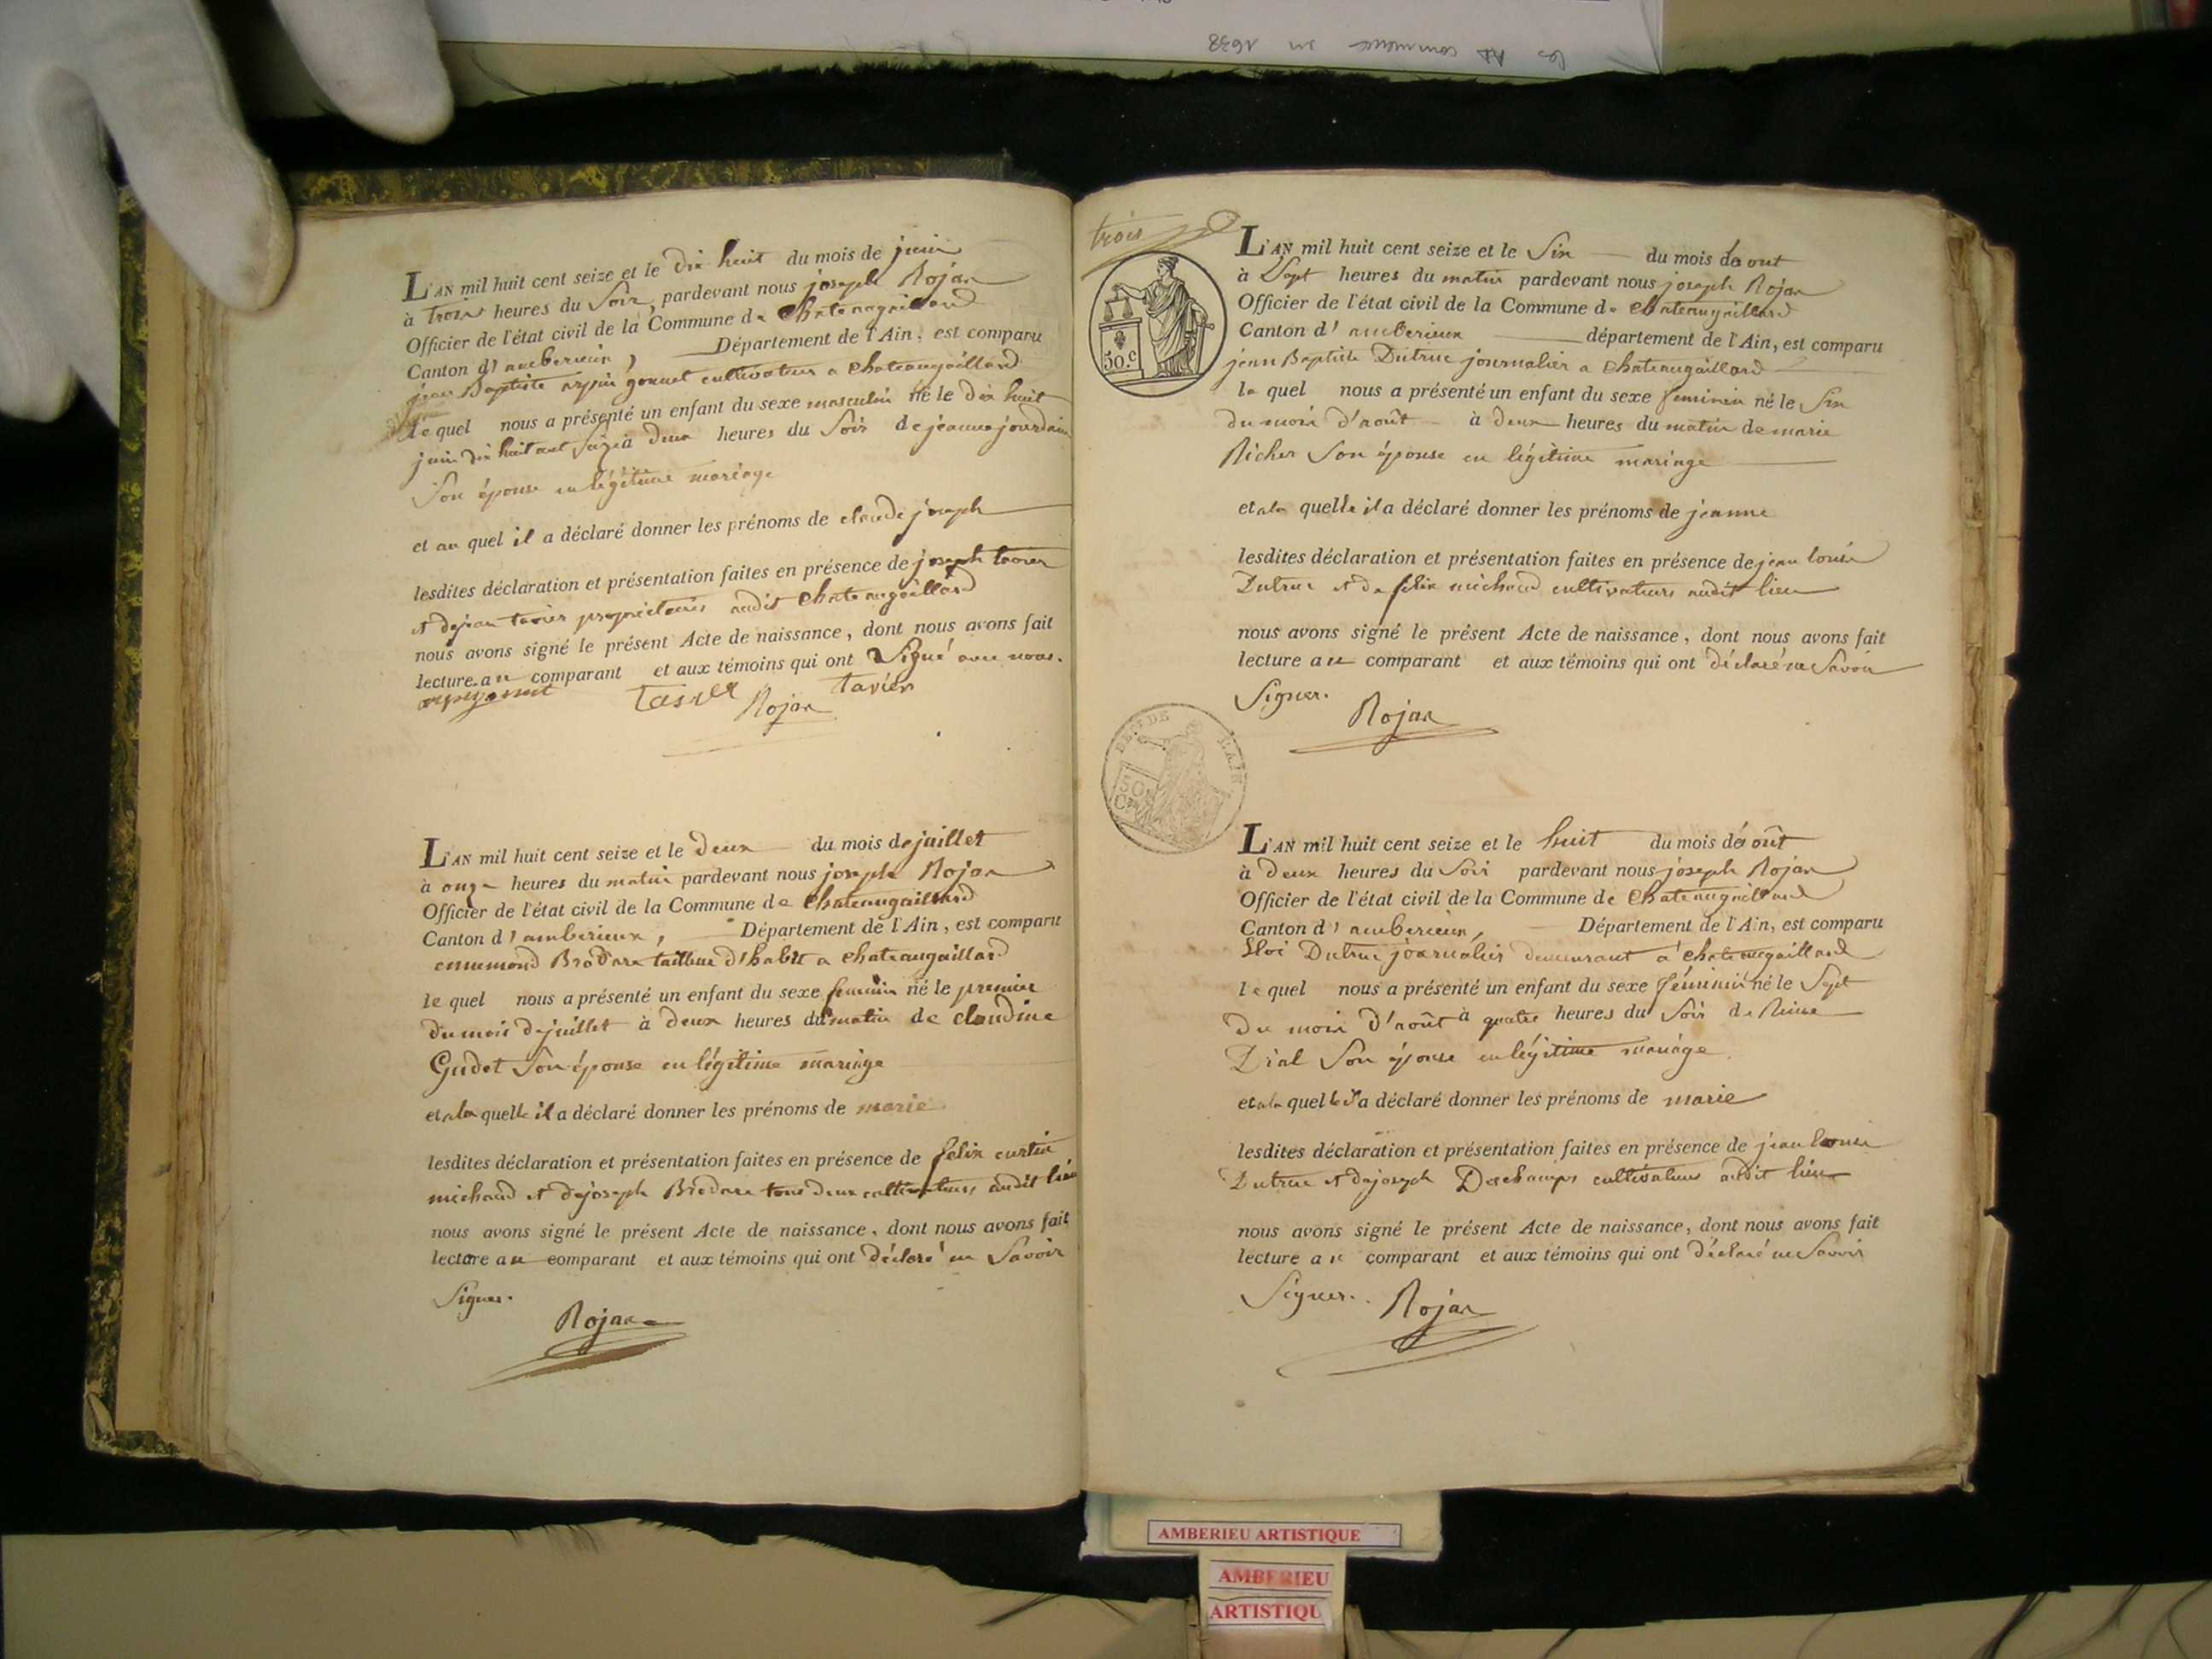 les commence en 1638
L'AN mil huit cent seize et le dix huit du mois de juin
à trois heures du soir, pardevant nous joseph Rojan
Officier de l'état civil de la Commune de Chateaugaillard
Canton d'amberieux, Département de l'Ain, est comparu
jean Baptiste arpin gonnet cultivateur a Chateaugaillard
le quel nous a présenté un enfant du sexe masculin né le dix huit
juin dix huit cent seize à deux heures du soir de jeanne jourdain
Son épouse en légitime mariage
et au quel il a déclaré donner les prénoms de claude joseph
lesdites déclaration et présentation faites en présence de joseph tavier
et de jean tavier propriétaires audit Chateaugaillard
nous avons signé le présent Acte de naissance, dont nous avons fait
lecture au comparant et aux témoins qui ont Signé avec nous.
arpin gonnet Tavier Rojan Tavier
L'AN mil huit cent seize et le deux du mois de juillet
à onze heures du matin pardevant nous joseph Rojan
Officier de l'état civil de la Commune de Chateaugaillard
Canton d'amberieux, Département de l'Ain, est comparu
ennemond Brodare tailleur d'habit a chateaugaillard
le quel nous a présenté un enfant du sexe feminin né le premier
du mois de juillet à deux heures du matin de claudine
Gudet Son épouse en légitime mariage
et a la quelle il a déclaré donner les prénoms de marie
lesdites déclaration et présentation faites en présence de felix curtin
michaud et de joseph Brodare tous deux cultivateurs audit lieu
nous avons signé le présent Acte de naissance, dont nous avons fait
lecture au comparant et aux témoins qui ont déclaré ne Savoir
Signer.
Rojan
trois
50.c
L'AN mil huit cent seize et le Six du mois daout
à Sept heures du matin pardevant nous joseph Rojan
Officier de l'état civil de la Commune de Chateaugaillard
Canton d'amberieux département de l'Ain, est comparu
jean Baptiste Dutruc journalier a Chateaugaillard
le quel nous a présenté un enfant du sexe feminin né le Six
du mois d'août à deux heures du matin de marie
Richer Son épouse en légitime mariage
et a la quelle il a déclaré donner les prénoms de jeanne
lesdites déclaration et présentation faites en présence de jean louis
Dutruc et de felix michaud cultivateurs audit lieu
nous avons signé le présent Acte de naissance, dont nous avons fait
lecture au comparant et aux témoins qui ont déclaré ne Savoir
Signer.
Rojan
DE L'AIN
50 Ces
L'AN mil huit cent seize et le huit du mois d'août
à deux heures du Soir pardevant nous joseph Rojan
Officier de l'état civil de la Commune de Chateaugaillard
Canton d'amberieux, Département de l'Ain, est comparu
Eloi Dutruc journalier demeurant a chateaugaillard
le quel nous a présenté un enfant du sexe féminin né le Sept
du mois d'août à quatre heures du Soir de Reine
Dial Son épouse en légitime mariage
et a la quelle il a déclaré donner les prénoms de marie
lesdites déclaration et présentation faites en présence de jean louis
Dutruc et de joseph Deschamps cultivateurs audit lieu
nous avons signé le présent Acte de naissance, dont nous avons fait
lecture au comparant et aux témoins qui ont déclaré ne Savoir
Signer.
Rojan
AMBERIEU ARTISTIQUE
AMBERIEU
ARTISTIQU